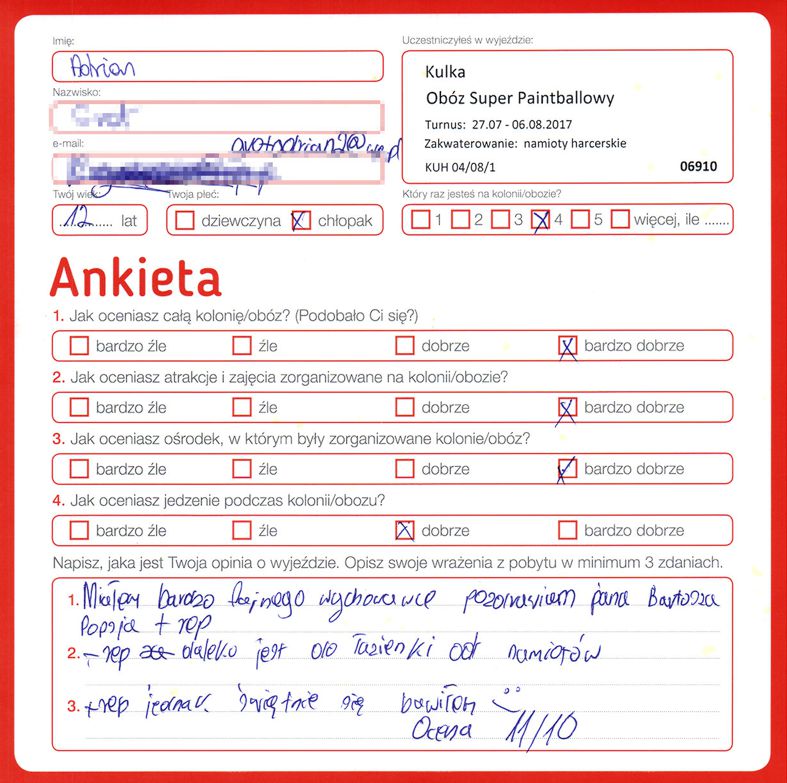 Imię:
Adrian
Uczestniczyłeś w wyjeździe:
Kulka
Obóz Super Paintballowy
Turnus: 27.07 - 06.08.2017
Zakwaterowanie: namioty harcerskie
KUH 04/08/1 06910
Nazwisko:
e-mail:
Twój wiek:
12 lat
Twoja płeć:
dziewczyna chłopak
Który raz jesteś na kolonii/obozie?
1 2 3 4 5 więcej, ile .......
Ankieta
1. Jak oceniasz całą kolonię/obóz? (Podobało Ci się?)
bardzo źle źle dobrze bardzo dobrze
2. Jak oceniasz atrakcje i zajęcia zorganizowane na kolonii/obozie?
bardzo źle źle dobrze bardzo dobrze
3. Jak oceniasz ośrodek, w którym były zorganizowane kolonie/obóz?
bardzo źle źle dobrze bardzo dobrze
4. Jak oceniasz jedzenie podczas kolonii/obozu?
bardzo źle źle dobrze bardzo dobrze
Napisz, jaka jest Twoja opinia o wyjeździe. Opisz swoje wrażenia z pobytu w minimum 3 zdaniach.
1. Miałem bardzo fajnego wychowawce pozdrawiam pana Bartosza
+ rep
2. - rep daleko jest do łazienki od namiotów
3. + rep jednak świetnie się bawiłem
Ocena 11/10